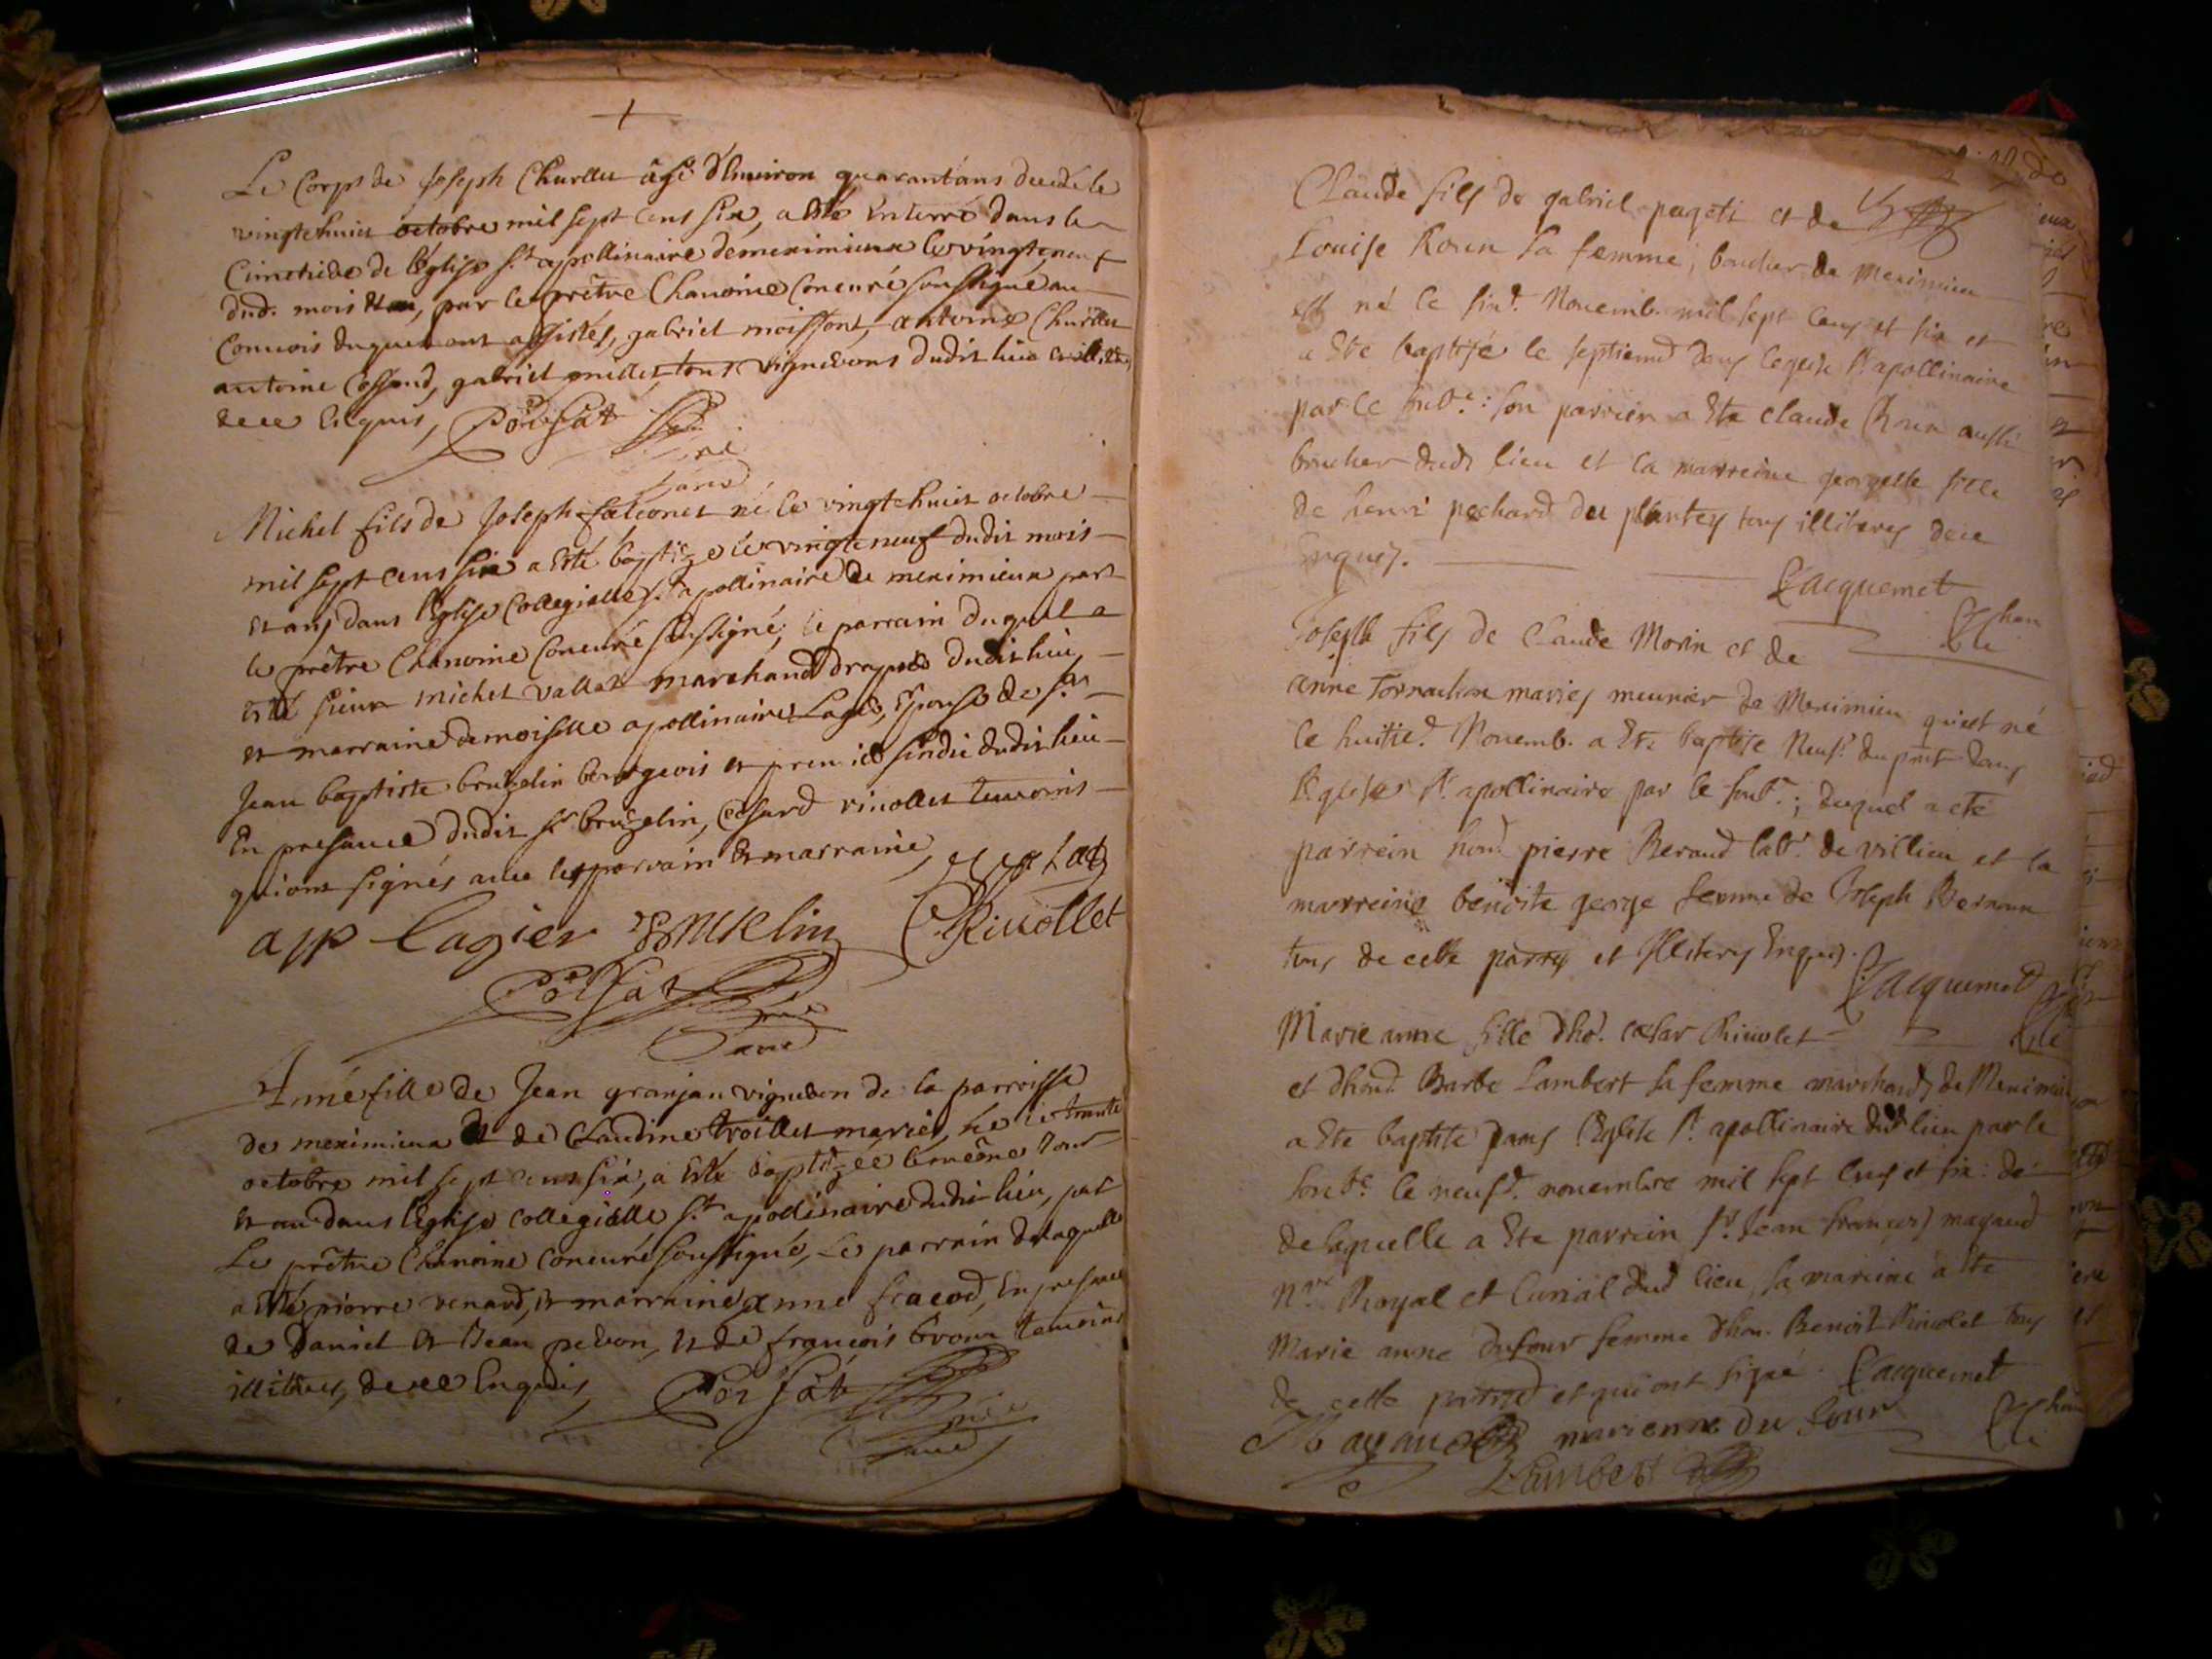 Le Corps de Joseph Churllet âgé d'Enuiron quarant'ans decédé le
vingt huict octobre mil sept cens six, a esté Enterré dans le
Cimetiere de l'Eglise St apollinaire de meximieux le vingt neuf
dud. mois et an, par le prêtre Chanoine Concuré soussigné au
Conuois duquel ont assistés, gabriel moissont, antoine Churllet
antoine Cossand, gabriel millet, tous vignerons dudit lieu illiterés
de ce Enquis, Poissat
Michel fils de Joseph falconet né le vingt huict octobre
mil sept cens six a esté baptizé le vingt neuf dudit mois
et an, dans l'Eglise Collegialle St apollinaire de meximieux par
le prêtre Chanoine Concuré soussigné, le parrain duquel a
esté sieur michel vallat marchand drapier dudit lieu,
et marraine demoiselle apollinaire Lagier, Epouse de sr
Jean baptiste bruzelin bourgeois et premier sindic dudit lieu
En presance dudit sr bruzelin, Cesard riuollet temoins
qui ont signés auec les parrain et marraine,
app Lagier Bruselin C Riuollet
Poissat
Anne fille de Jean granjan vigneron de la parroisse
de meximieux et de Claudine troillet mariés, née le trante
octobre mil sept cens six, a esté baptizée le même jour
et an dans l'Eglise collegialle St apollinaire dudit lieu, par
Le prêtre Chanoine Concuré soussigné, Le parrain de laquelle
a esté pierre renard, et marraine anne, En presance
de Daniel et Jean pebon, et de françois temoins
illiterés, de ce Enquis, Poissat
Claude fils de gabriel pageti et de
Louise Roux sa femme, boucher de Meximieu
est né le six.e Nouemb. mil sept cens et six et
a Eté baptisé le septieme dans l'eglise St apollinaire
par le soub.e : son parrein a Eté claude Roux aussi
boucher dud lieu et la marreine georgette fille
de henri pechard des plantes tous illiterés de ce
Enquis.
Jacquemet
Joseph fils de Claude Morin et de
anne Tornachon mariés meunier de Meximieu qui est né
le huitie.e Nouemb. a Eté baptisé Neuf.e du pnt dans
l'Eglise St apollinaire par le soub.e ; duquel a eté
parrein hon.e pierre Beraud lab.r de villieu et la
marreine benoite george femme de Joseph Bernoux
tous de cette parrss et Illiterés Enquis.
Jacquemet
Marie anne fille d'ho. cesar Riuolet
et d'hon.e Barbe Lambert sa femme marchands de Meximieu
a Eté baptisé dans l'Eglise St apollinaire dud lieu par le
soub.e le neuf.e nouembre mil sept cens et six : de
delaquelle a Eté parrein Sr Jean françois magaud
n.re Royal et Curial dud lieu, sa mareine a Eté
Marie anne dufour femme d'hon. Benoit Riuolet tous
de cette et qui ont signé. Jacquemet
Magaud marienne du four
Lambert